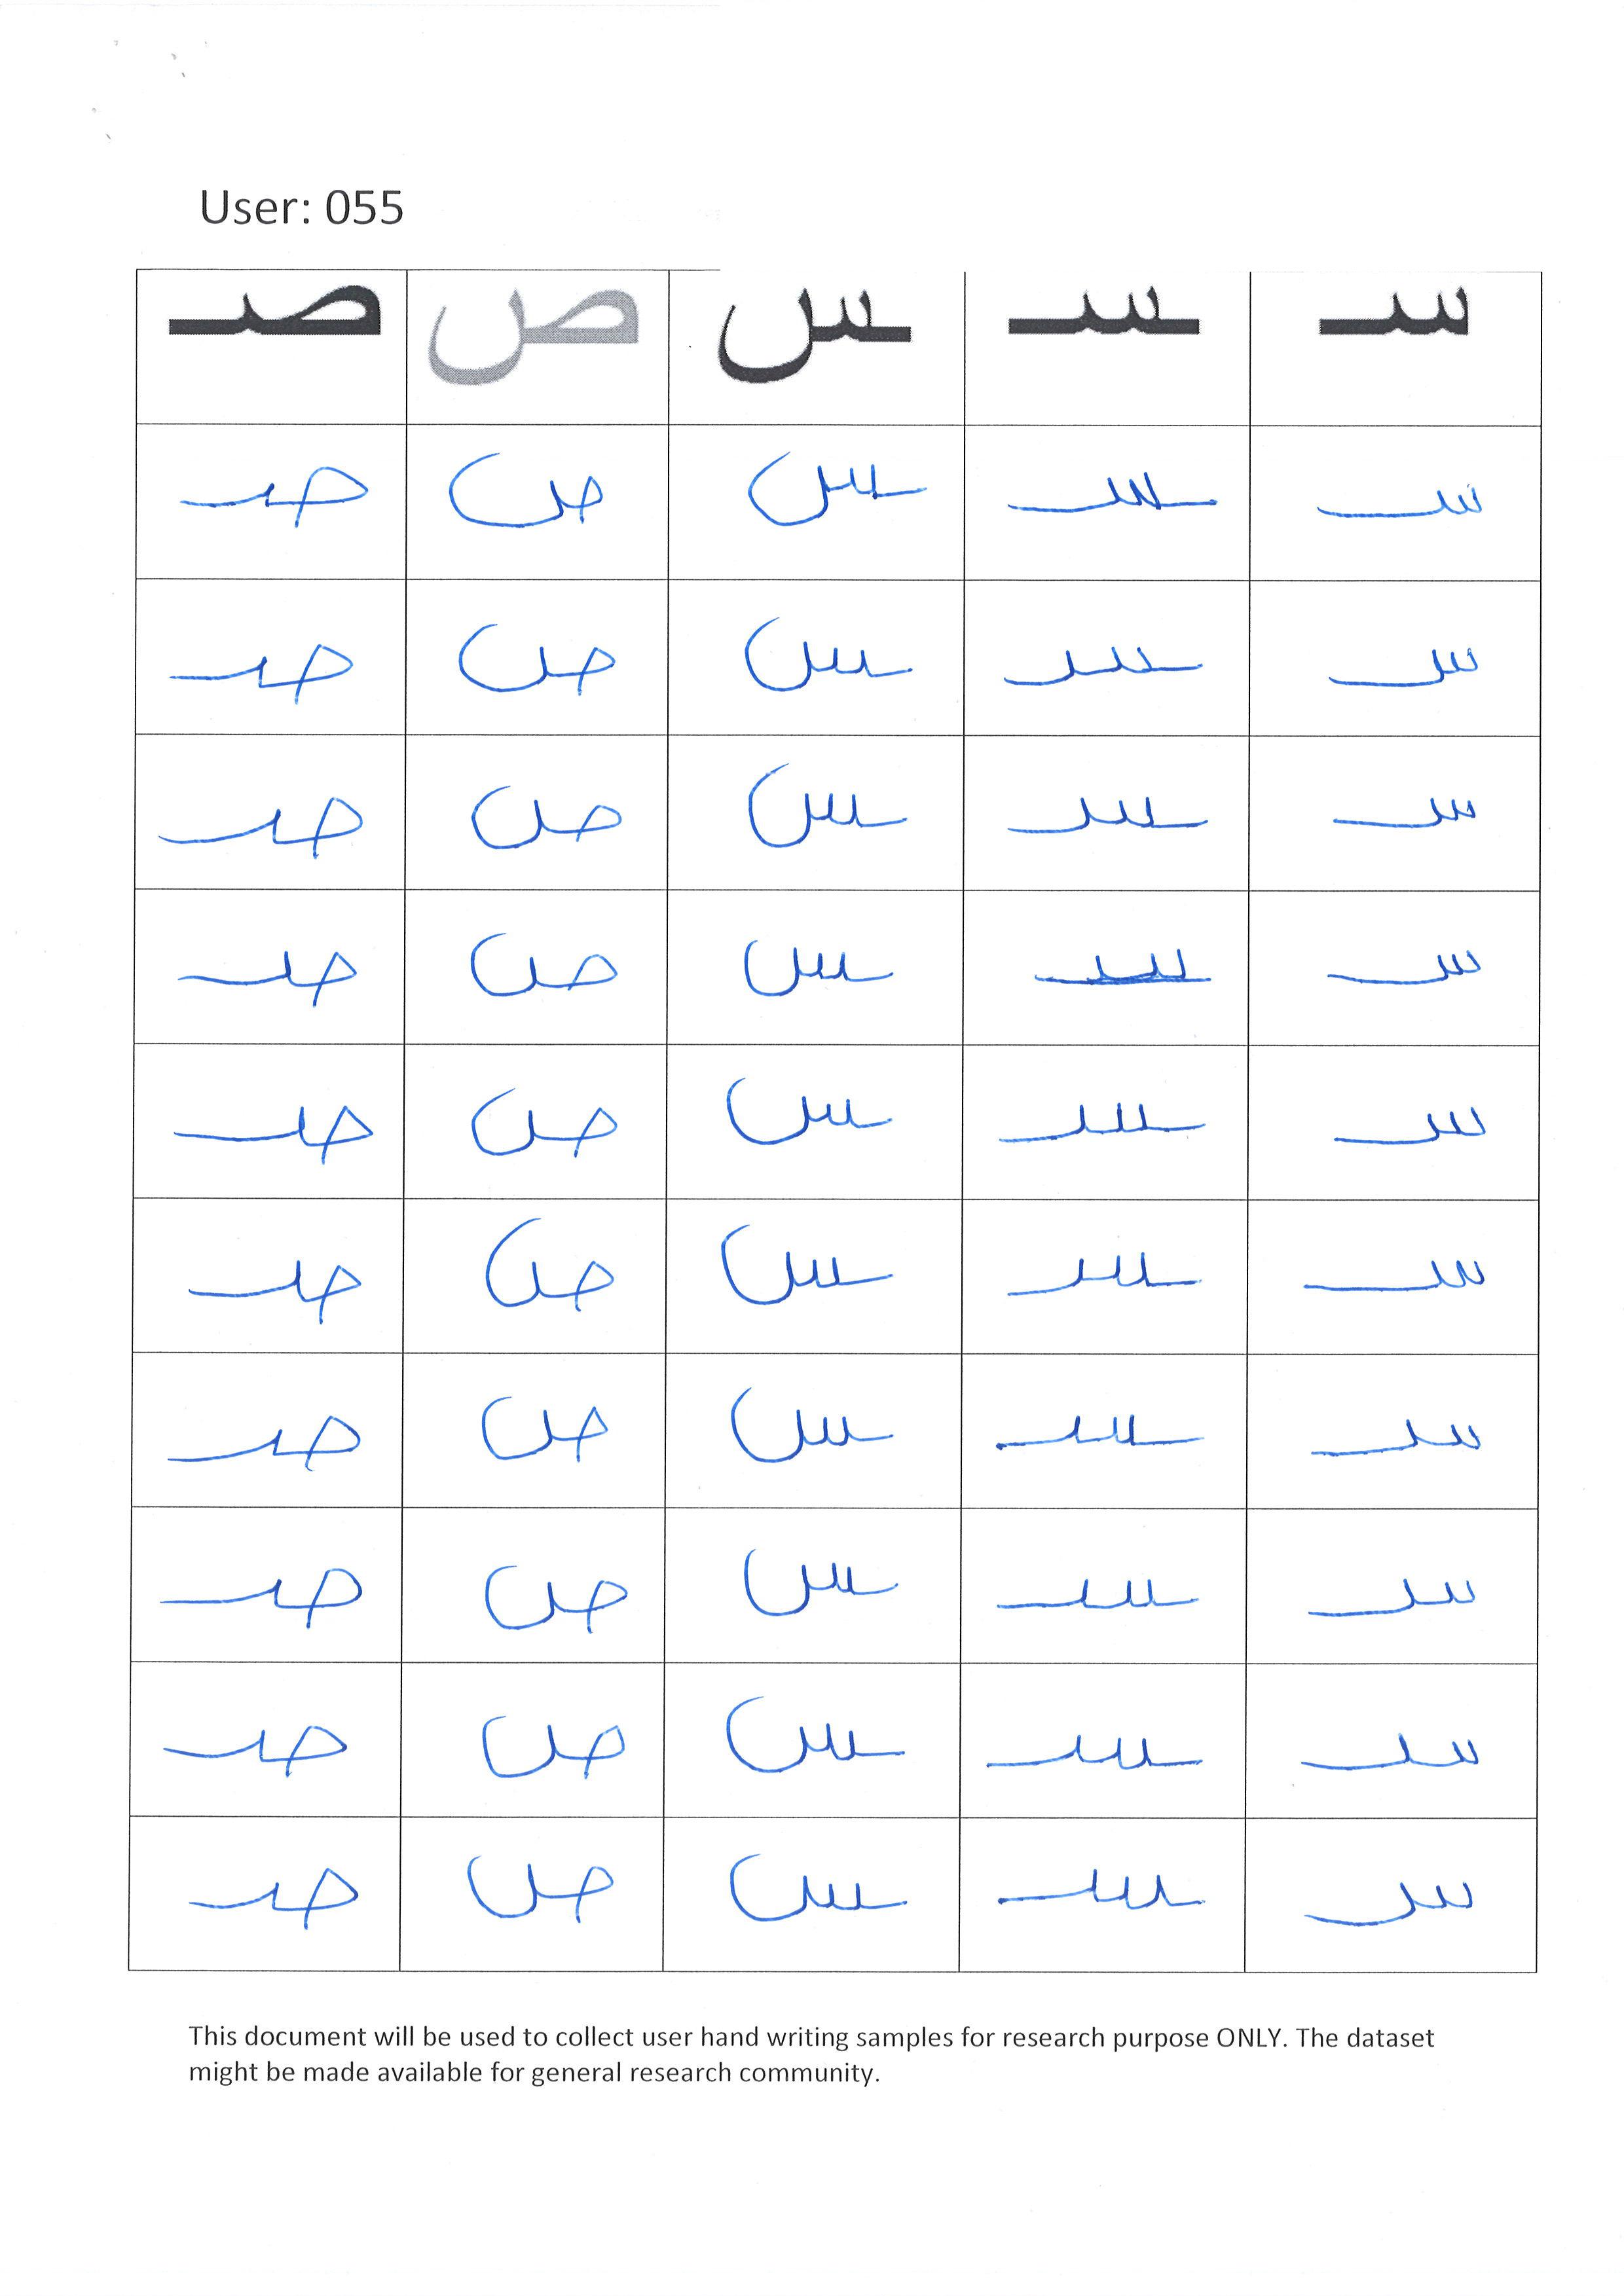 User: 055
سـ ـسـ ـس ص صـ
سـ ـسـ ـس ص صـ
سـ ـسـ ـس ص صـ
سـ ـسـ ـس ص صـ
سـ ـسـ ـس ص صـ
سـ ـسـ ـس ص صـ
سـ ـسـ ـس ص صـ
سـ ـسـ ـس ص صـ
سـ ـسـ ـس ص صـ
سـ ـسـ ـس ص صـ
سـ ـسـ ـس ص صـ
This document will be used to collect user hand writing samples for research purpose ONLY. The dataset
might be made available for general research community.